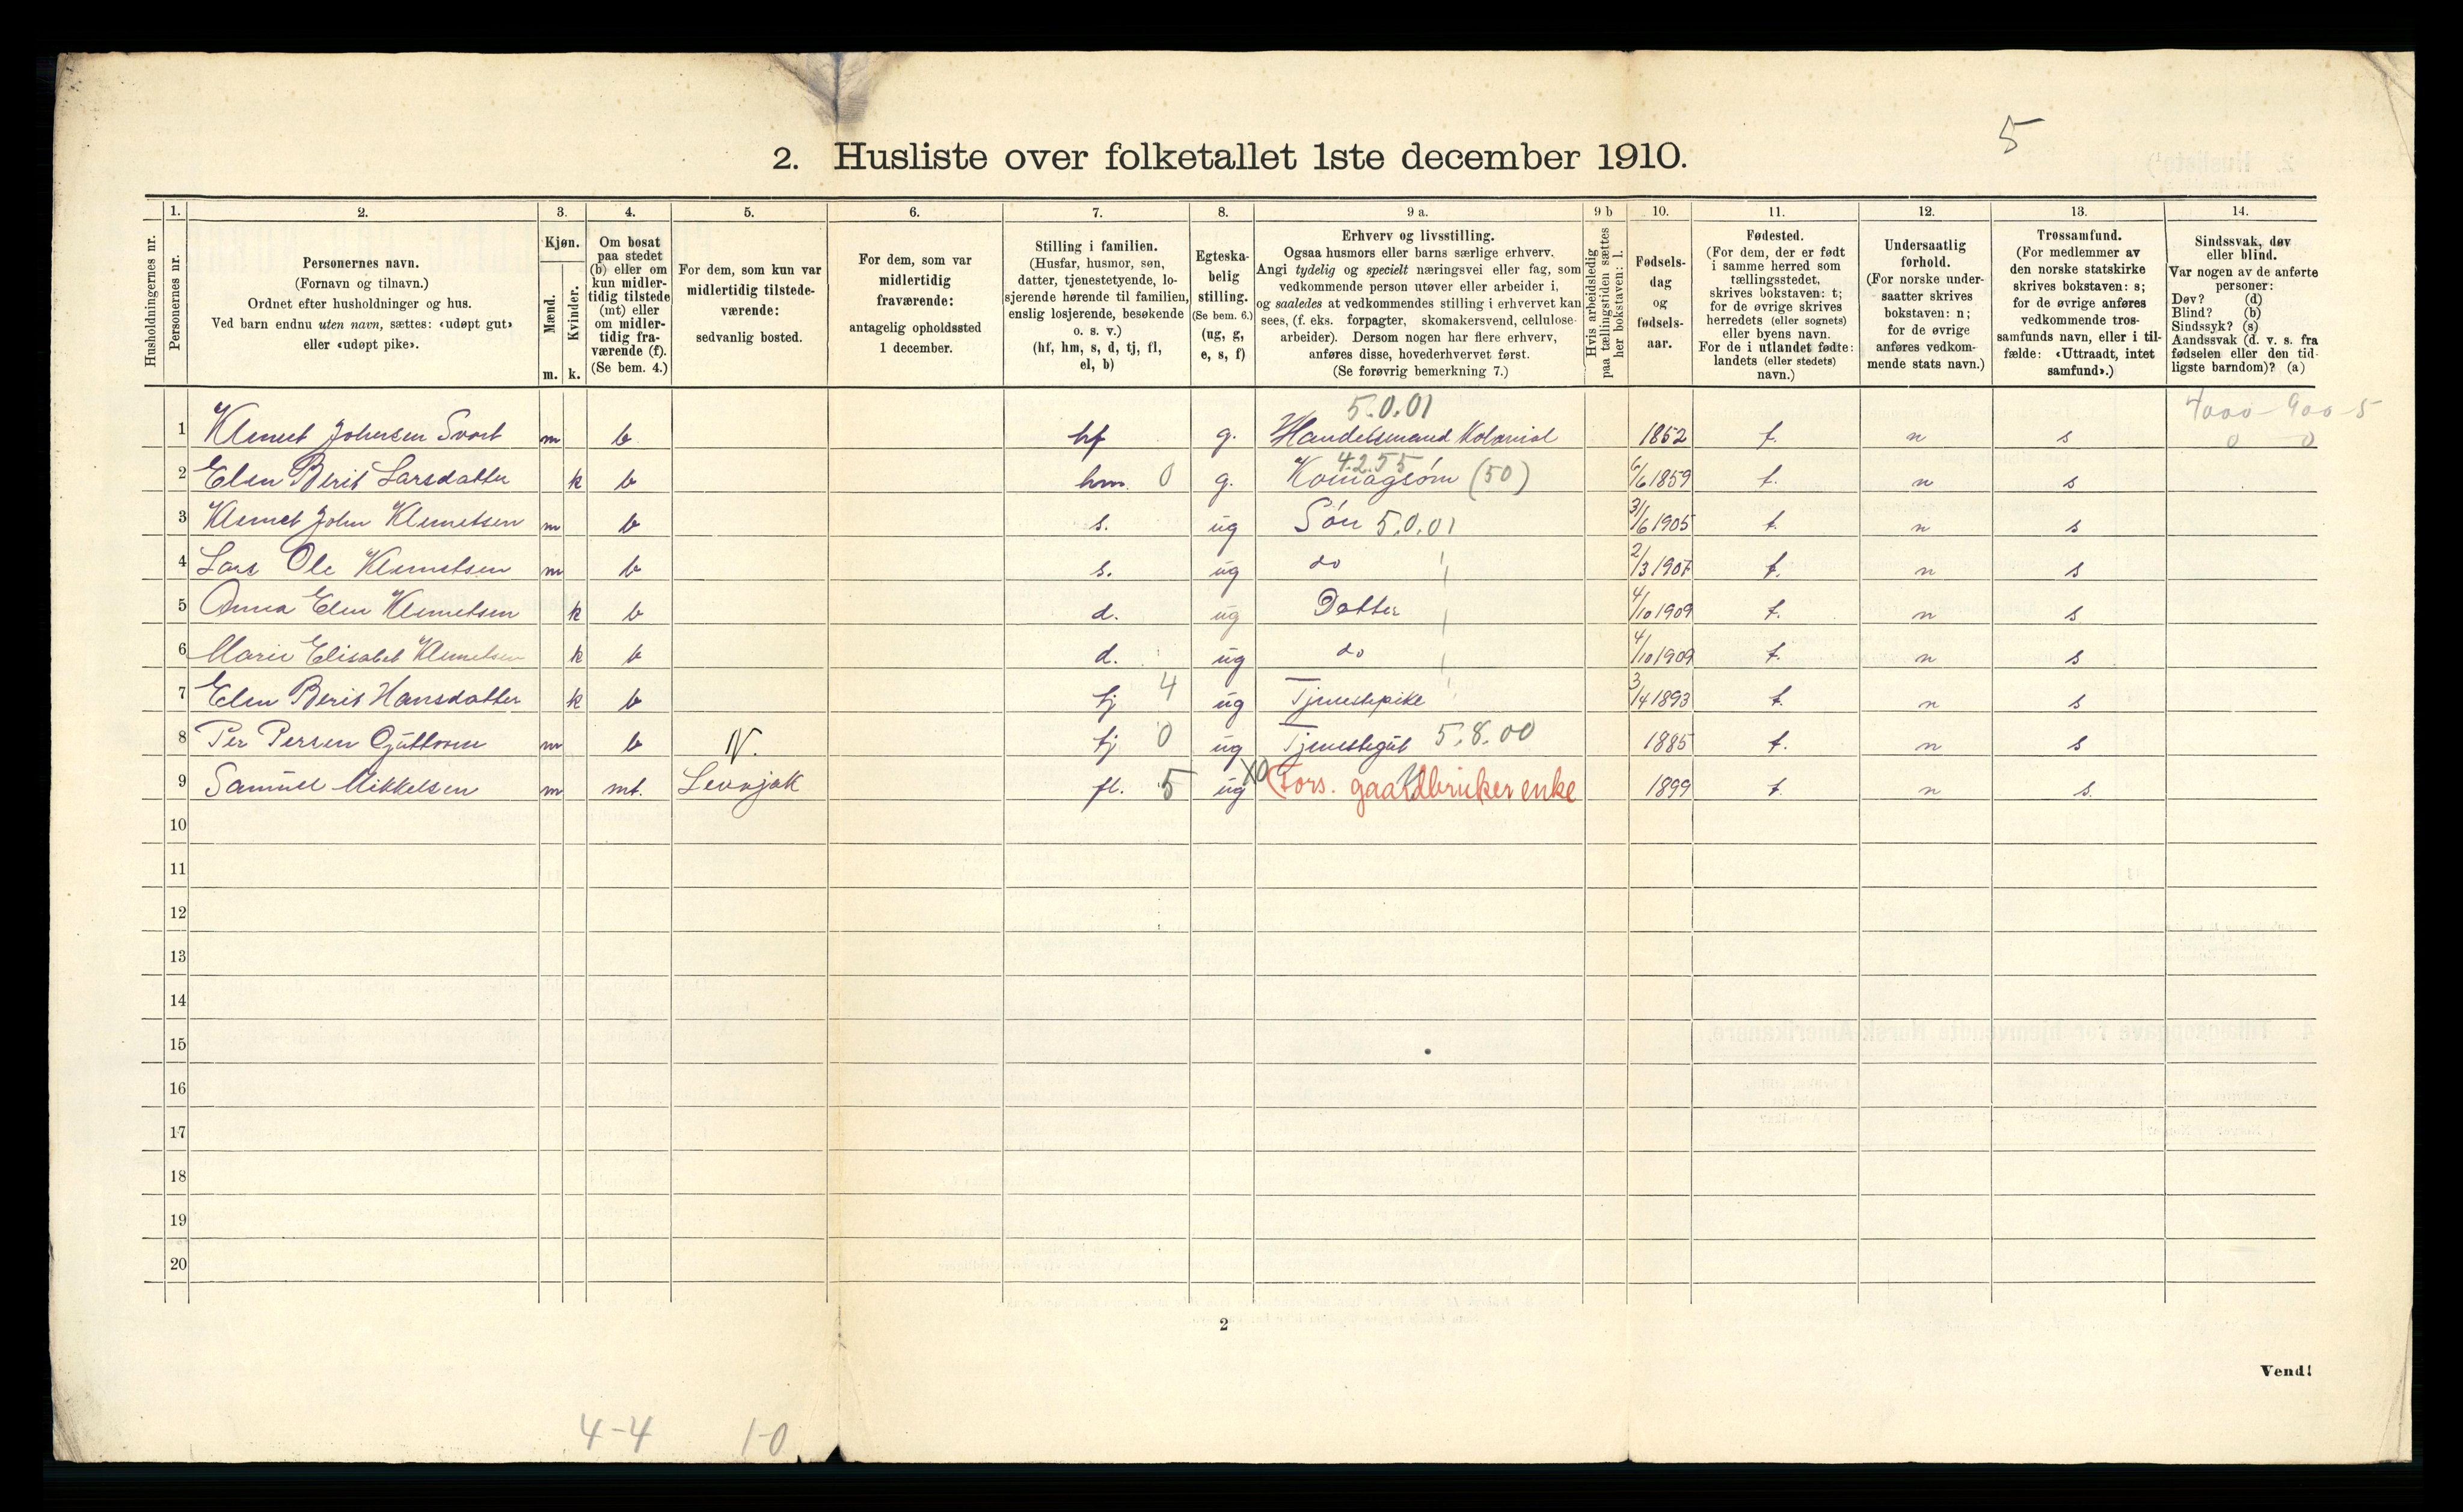 5
2. Husliste over folketallet 1ste december 1910.
Husholdningernes nr.
1.
Personernes nr.
2.
Personernes navn.
(Fornavn og tilnavn.)
Ordnet efter husholdninger og hus.
Ved barn endnu uten navn, sættes: «udøpt gut»
eller «udøpt pike».
3.
Kjøn.
Mænd.
Kvinder.
m. k.
4.
Om bosat
paa stedet
(b) eller om
kun midler-
tidig tilstede
(mt) eller
om midler-
tidig fra-
værende (f).
(Se bem. 4.)
5.
For dem, som kun var
midlertidig tilstede-
værende:
sedvanlig bosted.
6.
For dem, som var
midlertidig
fraværende:
antagelig opholdssted
1 december.
7.
Stilling i familien.
(Husfar, husmor, søn,
datter, tjenestetyende, lo-
sjerende hørende til familien,
enslig losjerende, besøkende
o. s. v.)
(hf, hm, s, d, tj, fl,
el, b)
8.
Egteska-
belig
stilling.
(Se bem. 6.)
(ug, g,
e, s, f)
9 a.
Erhverv og livsstilling.
Ogsaa husmors eller barns særlige erhverv.
Angi tydelig og specielt næringsvei eller fag, som
vedkommende person utøver eller arbeider i,
og saaledes at vedkommendes stilling i erhvervet kan
sees, (f. eks. forpagter, skomakersvend, cellulose-
arbeider). Dersom nogen har flere erhverv,
anføres disse, hovederhvervet først.
(Se forøvrig bemerkning 7.)
9 b
Hvis arbeidsledig
paa tællingstiden sættes
her bokstaven: l.
10.
Fødsels-
dag
og
fødsels-
aar.
11.
Fødested.
(For dem, der er født
i samme herred som
tællingsstedet,
skrives bokstaven: t;
for de øvrige skrives
herredets (eller sognets)
eller byens navn.
For de i utlandet fødte:
landets (eller stedets)
navn.)
12.
Undersaatlig
forhold.
(For norske under-
saatter skrives
bokstaven: n;
for de øvrige
anføres vedkom-
mende stats navn.)
13.
Trossamfund.
(For medlemmer av
den norske statskirke
skrives bokstaven: s;
for de øvrige anføres
vedkommende tros-
samfunds navn, eller i til-
fælde: «Uttraadt, intet
samfund».)
14.
Sindssvak, døv
eller blind.
Var nogen av de anførte
personer:
Døv? (d)
Blind? (b)
Sindssyk? (s)
Aandssvak (d. v. s. fra
fødselen eller den tid-
ligste barndom)? (a)
5.0.01 4000 - 900 - 5
1 Klemet Johnsen Svart m b hf g. Handelsmand Kolonial 1852 t. n s 0 0
4.2.55
2 Elen Berit Larsdatter k b hm. 0 g. Komagsøm (50) 6/6 1859 t. n s
3 Klemet John Klemetsen m b s. ug Søn 5.0.01 3/6 1905 t. n s
4 Lars Ole Klemetsen m b s. ug do 2/3 1907 t. n s
5 Anna Elen Klemetsen k b d. ug Datter 4/10 1909 t. n s
6 Marie Elisabet Klemetsen k b d. ug do 4/10 1909 t. n s
7 Elen Berit Hansdatter k b tj 4 ug Tjenestepike 3/4 1893 t. n s
8 Per Persen Guttorm m b N. tj 0 ug Tjenestegut 5.8.00 1885 t. n s
9 Samuel Mikkelsen m mt. Levajok fl. 5 ug X0 (Fors. gaardbruker enke 1899 t. n s.
10
11
12
13
14
15
16
17
18
19
20
2
Vend!
4-4 1-0